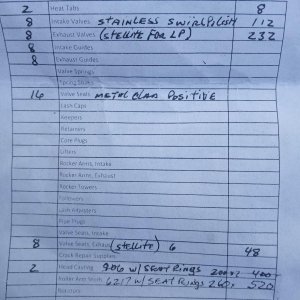 2 Heat Tabs 8
8 Intake Valves STAINLESS SWIRL POLISH 112
8 Exhaust Valves (STELLITE FOR LP) 232
8 Intake Guides
8 Exhaust Guides
Valve Springs
Spring Shims
16 Valve Seals METAL CLAD POSITIVE
Lash Caps
Keepers
Retainers
Core Plugs
Lifters
Rocker Arms, Intake
Rocker Arms, Exhaust
Rocker Towers
Followers
Lash Adjusters
Valve Seats, Intake
8 Valve Seats, Exhaust (stellite) 6 48
Crack Repair Supplies
2 Head Casting 906 w/ SEAT RINGS 400
Rocker Arm Shaft 6217 w/ SEAT RINGS 260 520